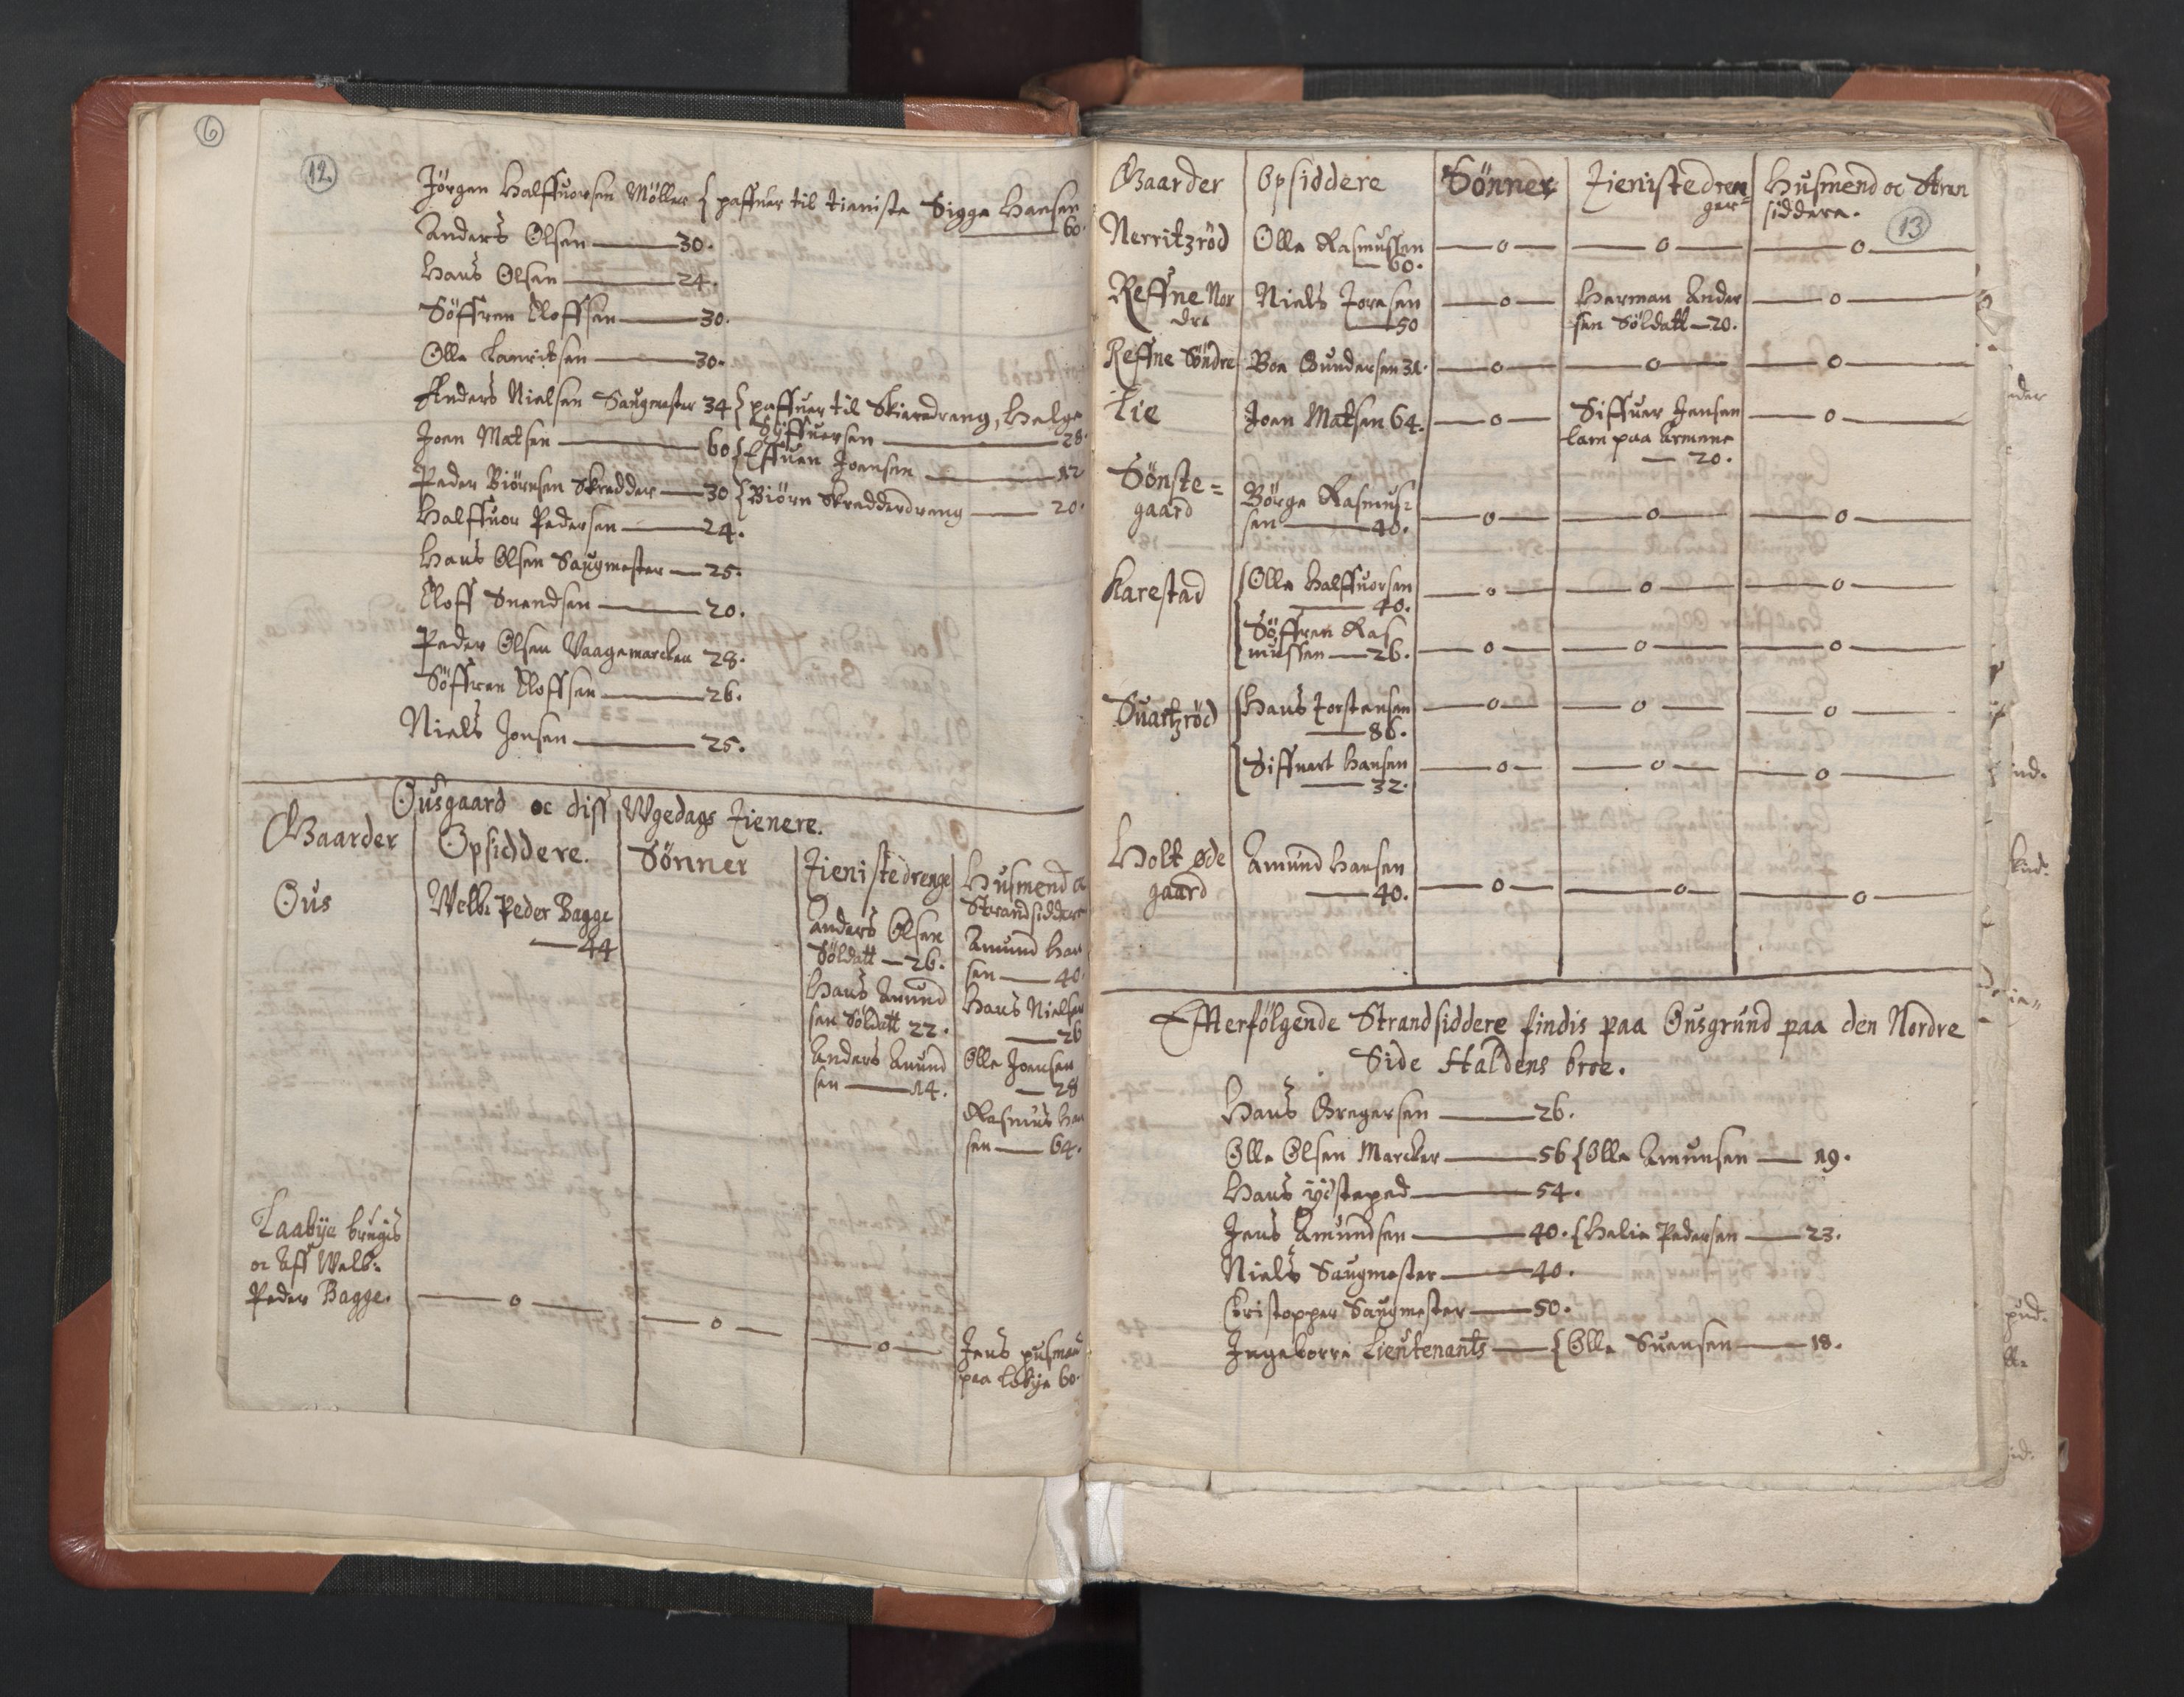 6
12.
Jörgen Halffuorsen Möller { haffuer til tieniste Sigge Hansen
60.
Anders Olsen — 30.
Hans Olsen — 24.
Söffren Eloffsen — 30.
Olle Lauridsen — 30.
Anders Nielsen Saugmester 34 { haffuer til Skieredreng, Helge
Siffuersen — 28.
Joen Matsen — 60 { Effuen Joensen — 12
Peder Biörnsen Skredder — 30 { Biörn Skredderdreng — 20.
Halffuor Pedersen — 24.
Hans Olsen Saugmester — 25.
Eloff Suendsen — 20.
Peder Olsen Vaagemarcken 28.
Söffren Eloffsen — 26.
Niels Jonsen — 25.
Ousgaard oc diss Wgedags Tienere.
Gaarder
Opsiddere.
Sönner
Tienistedrenge
Husmend oc
Strandsiddere
Ous
Welb: Peder Bagge
— 44
Anders Olsen
Söldatt — 26.
Hans Amund
sen Söldatt 22.
Anders Amund
sen — 14.
Amund Han
sen — 40
Hans Nielsen
— 26
Olle Joensen
— 28
Rasmus Han
sen — 64.
Laabye brugis
oc Aff Welb:
Peder Bagge.
— o —
— o —
— o —
Jens husmand
paa Lobye 60.
Gaarder
Opsiddere
Sönner
Tienistedren
ger
Husmend oc Stran
siddere.
13
Nerritzröd
Olle Rasmussen
— 60.
— o — — o — — o —
Reffne Nor
dre
Niels Toresen
— 50
— o —
Herman Ander
sen Söldatt — 20.
— o —
Reffne Söndre
Boe Gundersen 31.
— o — — o — — o —
Lie
Joen Matsen 64.
— o —
Siffuer Jensen
lam paa Armene
— 20.
— o —
Sönste=
gaard
Börge Rasmus=
sen — 40.
— o — — o — — o —
Karestad
{ Olle Halffuorsen
— 40.
— o — — o — — o —
{ Söffren Ras
mussen — 26.
— o — — o — — o —
Suartzröd
{ Hans Torstensen
— 86.
— o — — o — — o —
{ Siffuert Hansen
— 32.
— o — — o — — o —
Holt øde
gaard
Amund Hansen
— 40.
— o — — o — — o —
Effterfölgende Strandsiddere findis paa Ousgrund paa den Nordre
Side Haldens broe.
Hans Gregersen — 26.
Olle Olsen Marcker — 56 { Olle Amunsen — 19.
Hans ydsteped — 54.
Jens Amundsen — 40. { Helie Pedersen — 23.
Niels Saugmester — 40.
Christopher Saugmester — 50.
Ingeborre Lieutenants — { Olle Suensen — 18.